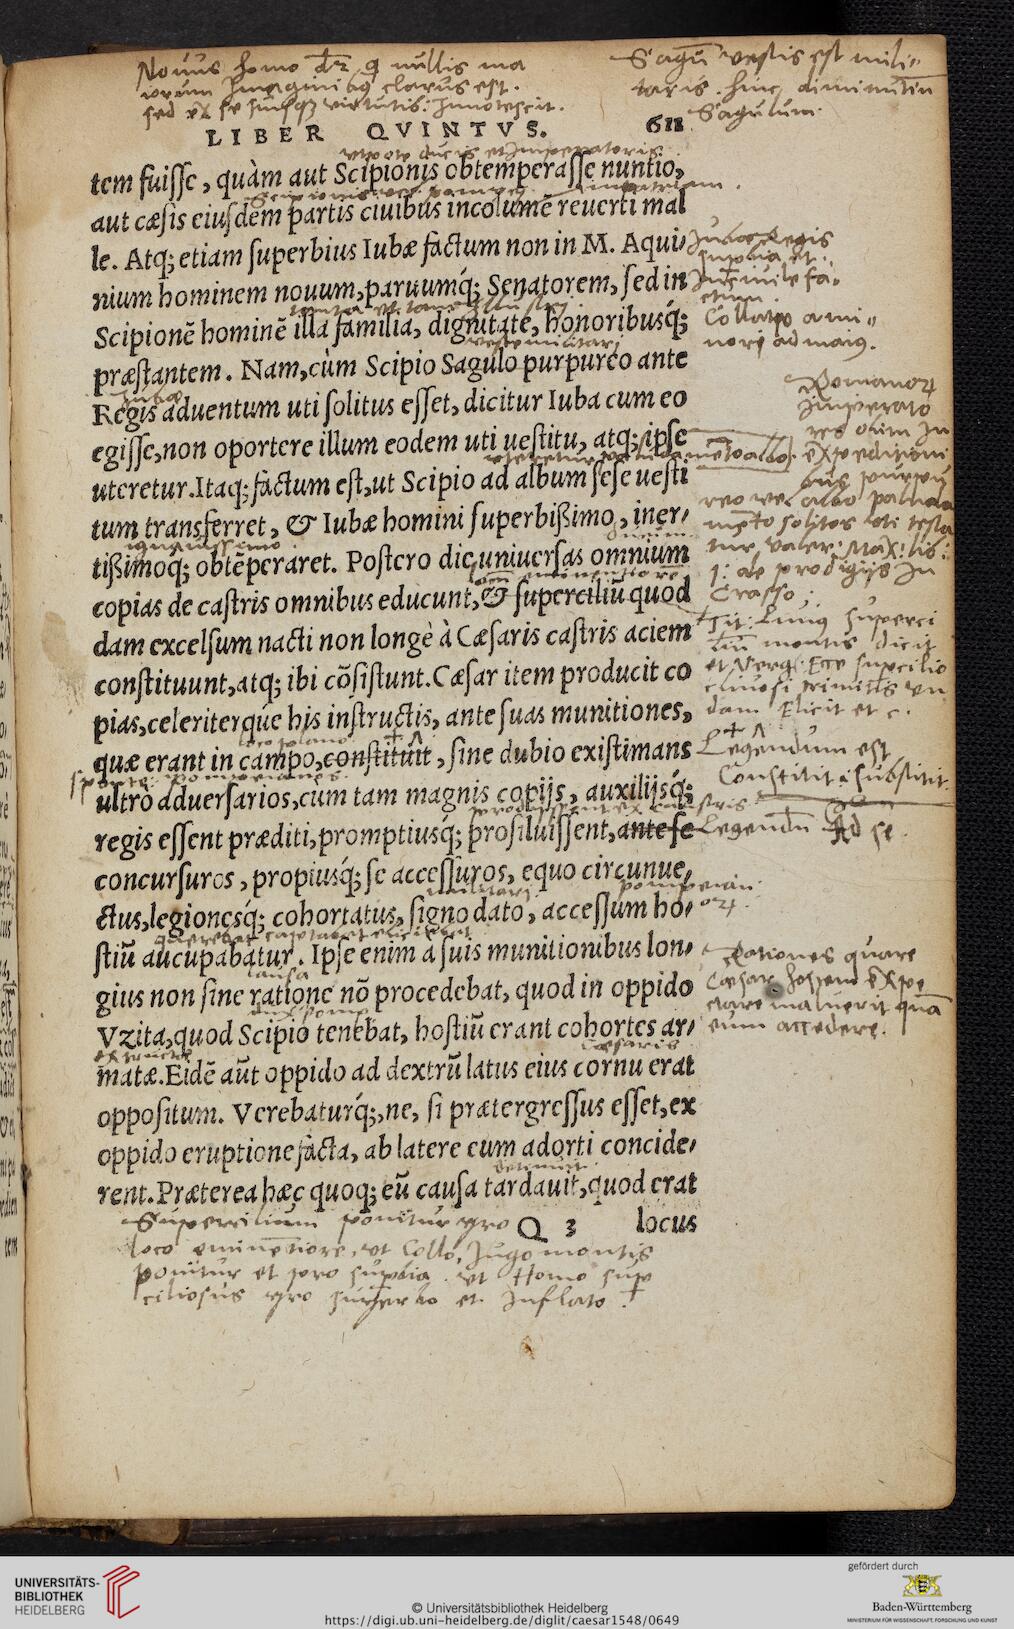 Novus homo dr̃ q nullis ma
iorum Imaginibus clarus est.
sed ex se suisq; virtutis: Innotescit.
Sagũ vestis est mili„
taris. hinc diminutiũ
Sagulum.
LIBER QVINTVS. 611
utpote ducis et Imperatoris.
tem fuisse, quàm aut Scipionis obtemperasse nuntio,
aut cæsis eiusdem partis ciuibus incolumẽ reuerti mal
le. Atq; etiam superbius Iubæ factum non in M. Aqui-
nium hominem nouum, paruumq́; Senatorem, sed in
Scipionẽ hominẽ illa familia, dignitate, honoribusq́;
veste militari
præstantem. Nam, cùm Scipio Sagulo purpureo ante
Jubæ
Regis aduentum uti solitus esset, dicitur Iuba cum eo
egisse, non oportere illum eodem uti uestitu, atq; ipse
uteretur. Itaq; factum est, ut Scipio ad album sese uesti
tum transferret, & Iubæ homini superbißimo, iner-
ignauissimo
tißimoq; obtẽperaret. Postero die uniuersas omnium
copias de castris omnibus educunt, & superciliũ quod
dam excelsum nacti non longè à Cæsaris castris aciem
constituunt, atq; ibi cõsistunt. Cæsar item producit co
pias, celeriterque his instructis, ante suas munitiones,
loco plano
quæ erant in campo, constituit, sine dubio existimans
sponte: Pompeianos.
ultrò aduersarios, cùm tam magnis copijs, auxilijsq́;
regis essent præditi, promptiusq́; prosiluissent, antese
concursuros, propiusq́; se accessuros, equo circunue-
militari
ctus, legionesq́; cohortatus, signo dato, accessum ho-
stiũ aucupabatur. Ipse enim à suis munitionibus lon-
causa
gius non sine ratione nõ procedebat, quod in oppido
Vzita, quod Scipio tenebat, hostiũ erant cohortes ar-
Cæsaris
matæ. Eidẽ aũt oppido ad dextrũ latus eius cornu erat
oppositum. Verebaturq́;, ne, si prætergressus esset, ex
oppido eruptione facta, ab latere eum adorti concide-
rent. Præterea hæc quoq; eũ causa tardauit, quod erat
Q 3 locus
Jubæ Regis
Collatio a mi„
nori ad maius.
Romanor
Imperato
res olim In
Expeditioni
bus purpu
reo vel albo paluda
mẽto solitos uti testa
tur Valer: Max: lib:
1: de prodigijs In
Crasso:
et Verg: Ecce supcilio
clivosi tramitis un
dam Elicit et c.
Legendum est
Constitit: substitit.
Legendũ Ad se.
Rationes quare
Cæsar hostem Expe
ctare maluerit quã
eum accedere.
Supercilium ponitur pro
loco eminẽtiore, ut Collo, Jugo montis
ponitur et pro supbia. ut Homo sup
ciliosus pro superbo et Inflato.
UNIVERSITÄTS-
BIBLIOTHEK
HEIDELBERG
© Universitätsbibliothek Heidelberg
https://digi.ub.uni-heidelberg.de/diglit/caesar1548/0649
gefördert durch
Baden-Württemberg
MINISTERIUM FÜR WISSENSCHAFT, FORSCHUNG UND KUNST